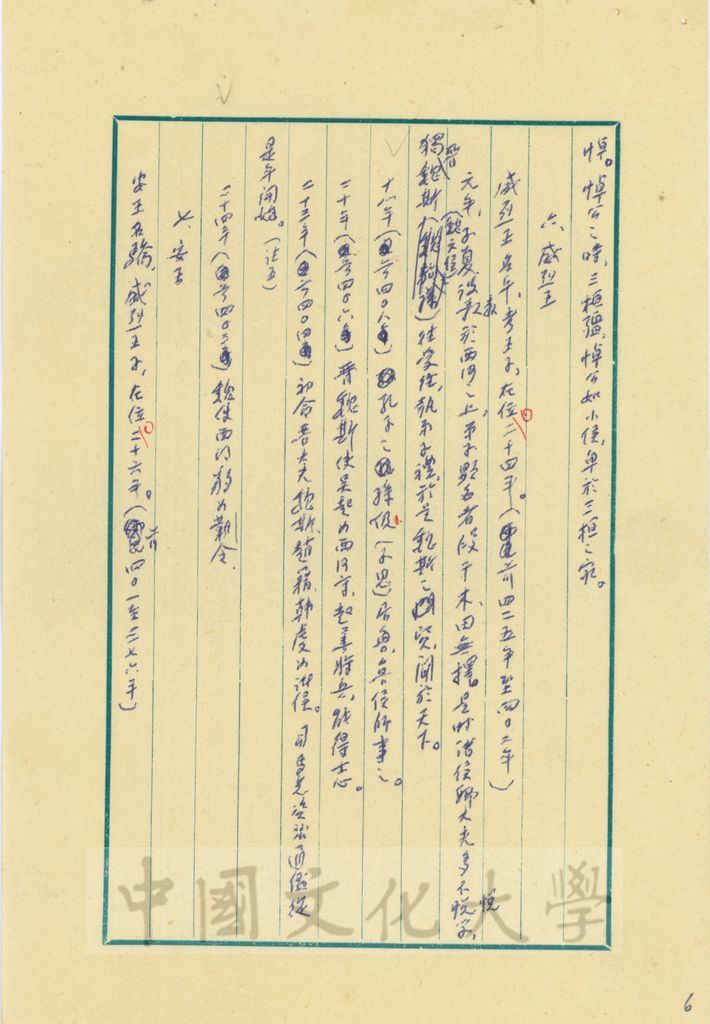 悼。悼公之時，三桓彊，悼公如小侯，卑於三桓之家。
六、威烈王
威烈王名午，考王子，在位二十四年。（前四二五年至四〇二年）
元年，子夏設教於西河之上，弟子顯名者段干木、田無擇。是時諸侯卿大夫多不悅學，
晉獨魏斯（魏文侯）往受經，執弟子禮，於是魏斯之賢，聞於天下。
十八年（前四〇八年）孔子之孫伋（子思）居魯，魯侯師事之。
二十年（前四〇六年）晉魏斯使吳起為西河守，起善將兵，能得士心。
二十三年（前四〇四）初命晉大夫魏斯、趙籍、韓虔為諸侯。司馬光資治通鑑從
是年開始。（註五）
二十四年（前四〇三）魏使西門豹為鄴令。
七、安王
安王名驕，威烈王子，在位二十六年。（前四〇一至三七六年）
中國文化大學
6